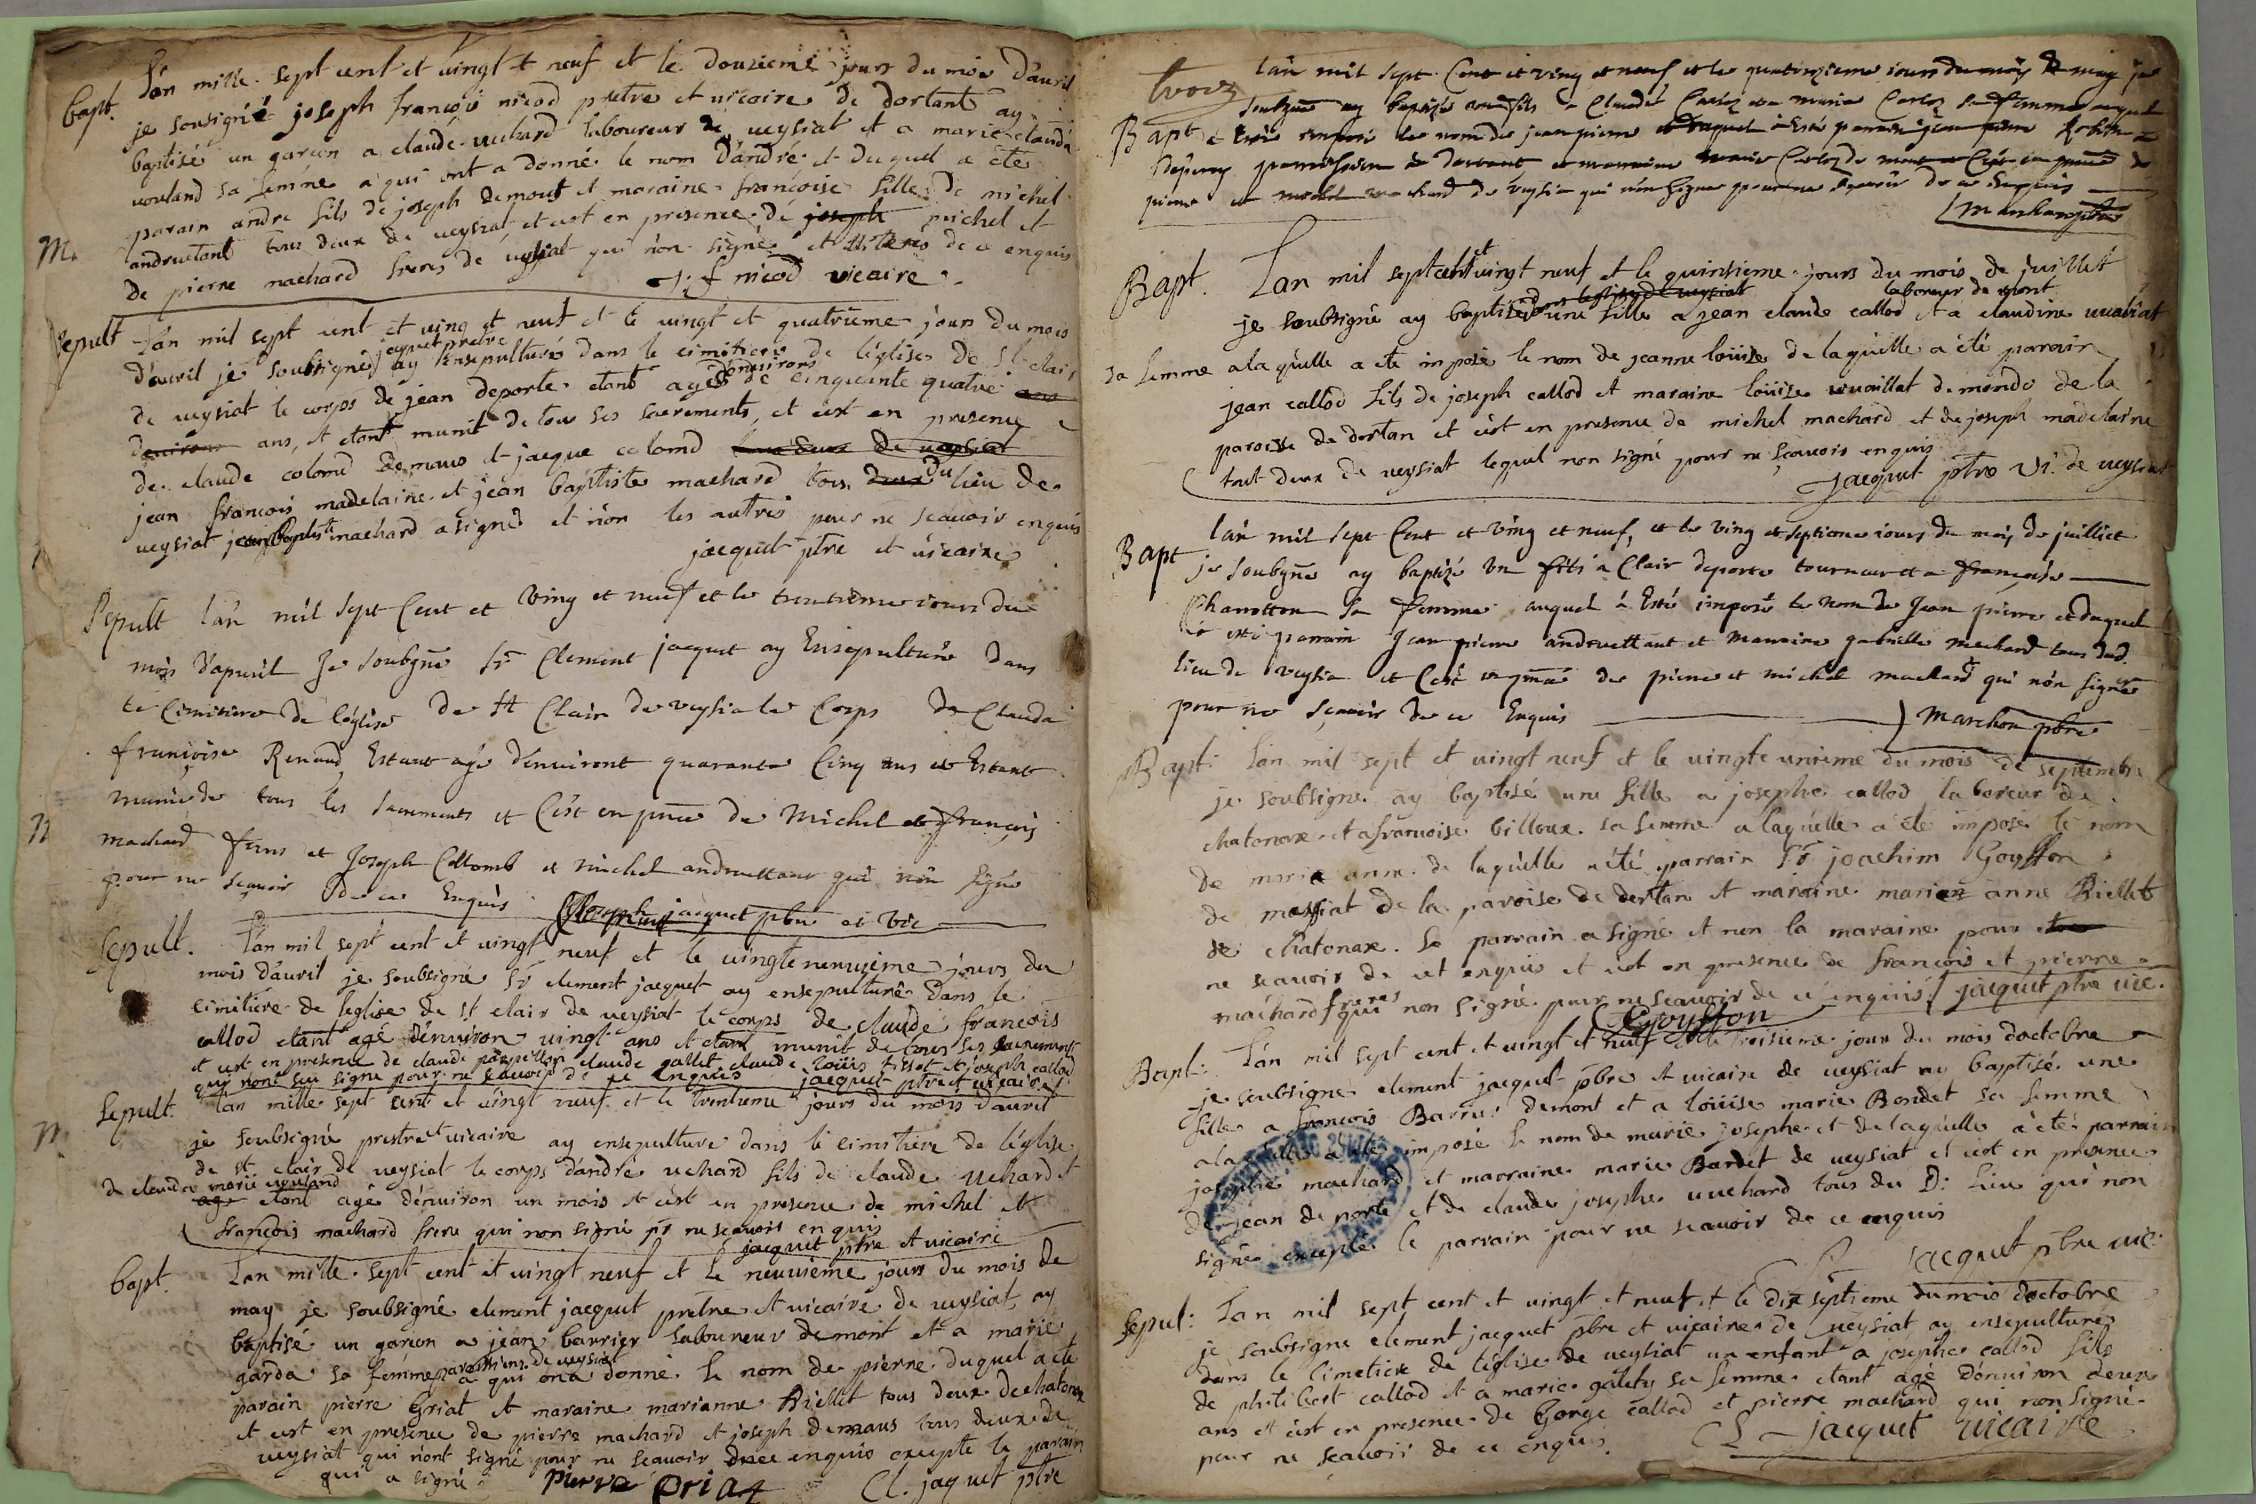 Bapt. L'an mille sept cent et vingt et neuf et le douzieme jours du mois d'auril
je sousigné joseph françois nicod pretre et uicaire de dortant ay
baptisé un garcon a claude uuchard laboureur de ueysiat et a marie claudà
uouland sa femme a qui ont a donné le nom d'andré et duquel a ete
parain andre fils de joseph demous et maraine françoise fille de michel
M. andruetant tous deux de ueysiat et c'est en presence de joseph michel et
de pierre machard freres de ueysiat qui n'on signé de ce enquis
j: f nicod vicaire.
Sepult L'an mil sept cent et uing et neuf et le uingt et quatrieme jours du mois
d'auril je soubsigné jacquet pretre ay ensepulturé dans le cimitiere de l'église de st clair
de ueysiat le corps de jean deporte etant agé d'enuirons de cinquante quatre ans
denuirons ans, et etant munit de tous ses sacrements, et c'est en presence
de claude colomd demaus et jacque colomd tous deux de ueysiat
jean françois madelaine et jean baptiste machard tous deux du lieu de
ueysiat jean baptiste machard a signé et non les autres pour ne scauoir enquis
jacquet ptre et uicaire
Sepult l'an mil sept Cent et Ving et neuf et le trentieme iours du
mois d'apuril Je soubgné Sr Clement jacquet ay Ensepulturé dans
le Cimitiere de l'église de St Clair de veysia le Corps de Clauda
françoise Renaud Estant agé d'enuiront quarante Cinq ans et Estant
munie de tous les sacrements et C'est en pnce de Michel et françois
n machard freres et Joseph Collomb et michel andruettant qui n'on signé
pour ne scauoir de ce Enquis
jacquet pbre et Vic
Sepult. L'an mil sept cent et uingt neuf et le uingtenenuieme jours du
mois d'auril je soubsigné Sr clement jacquet ay ensepulturé dans le
cimitiere de l'eglise de st clair de ueysiat le corps de claude françois
callod etant agé d'enuiron uingt ans et etant munit de tous ses sacrements
et c'est en presence de claude claude gallet claude loüis tissot et joseph callod
qui n'ont seu signé pour ne scauoir de ce enquis jacquet ptre et uicaire
Sepult. L'an mille sept cent et uingt neuf et le trentieme jours du mois d'auril
n. je soubsigné prestre et uicaire ay ensepulture dans le cimitiere de l'église
de st clair de ueysiat le corps d'andré uchard fils de claude uchard et
de claudà marie uouland
agé etant agé d'enuiron un mois et c'est en presence de michel et
françois machard frere qui non signé pr ne scauois enquis
jacquet ptre et uicaire
bapt. L'an mille sept cent et uingt neuf et le neuuieme jours du mois de
may je soubsigné clement jacquet pretre et uicaire de ueysiat ay
baptisé un garcon a jean barrier laboureur demont et a marie
garda sa femme paroissiens de ueysiat a qui on a donné le nom de pierre duquel a ete
parain pierre Griat et maraine marianne Biellet tous deux de chatonax
et c'est en presence de pierre machard et joseph demaus tous deux de
ueysiat qui n'ont signé pour ne scauoir de ce enquis excepte le parain
qui a signé pierre Cl. jaquet ptre
Bapt l'an mil sept Cent et ving et neuf et le quatorzieme iours du mois de may je
soubgné ay baptizé un fils a Claude Carloz et a marie Carloz sa femme auquel
a Esté imposé le nom de jean pierre
pierre et michel machard de veysia qui n'on signé pour ne scauoir de ce Enquis
Marchon pbre
Bapt. L'an mil sept cent et uingt neuf et le quinsieme jours du mois de juillet
je soubsigné ay baptisé dans leglise de ueysiat une fille a jean claude callod laboreur de mont et a claudine
sa femme a la quelle a ete imposé le nom de jeanne loüise de laquelle a été parrain
jean callod fils de joseph callod et maraine loüise uuaillat de mondo de la
paroisse de dortan et c'est en presence de michel machard et de joseph madelaine
tout deux de ueysiat lequel non signé pour ne sçauois enquis
jacquet ptre Vi: de ueysiat
Bapt l'an mil sept Cent et Ving et neuf, et le ving et septieme iours du mois de juilliet
je soubgné ay baptizé Vn fils a Clair deporte tourneur et a françoise
Chanotton sa femme auquel a Esté imposé le nom de Jean pierre et duquel
a esté parrain Jean pierre andruettant et Marraine gabrielle machard tous dud.
lieu de veysia et C'est en pnce de pierre et michel machard qui n'on signé
pour ne scauoir de ce Enquis Marchon pbre
Bapt: L'an mil sept et uingt neuf et le uingte unieme du mois de septembre
je soubsigne ay baptisé une fille a josephe callod laboreur de
chatonax et a francoise billoux sa femme a laquelle a été imposé le nom
de marie anne de laquelle a été parrain Sr joachim Goyffon
de massiat de la paroise de dortan et maraine marien anne Biellet
de chatonax. le parrain a signé et non la maraine pour
ne scauoir de cet enquis et c'est en presence de françois et pierre
machard freres qui non signé pour ne scauoir de ce enquis jacquet ptre uic.
Goyffon
Bapt: L'an mil sept cent et uingt et neuf et le troisieme jour du mois d'octobre
je soubsigne clement jacquet pbre et uicaire de ueysiat ay baptisé une
fille a francois Barrier demont et a loüise marie Bondet sa femme
a la quelle a ete imposé le nom de marie josephe et de laquelle a été parrain
josephe machard et marraine marie Bardet de ueysiat et c'est en presence
de jean de porte et de claude josephe uuchard tous du D: lieu qui non
signé excepté le parrain pour ne scauoir de ce enquis
jacquet pbre uic:
Sepul: L'an mil sept cent et uingt et neuf et le dix septieme du mois d'octobre
je soubsigne clement jacquet pbre et uicaire de ueysiat ay ensepulturé
dans le cimetiere de l'église de ueysiat un enfant a josephe callod fils
de philibert callod et a marie sa femme etant agé d'enuiron deux
ans et c'est en presence de George callod et pierre machard qui non signé
pour ne scauoir de ce enquis. Cl jacquet uicaire